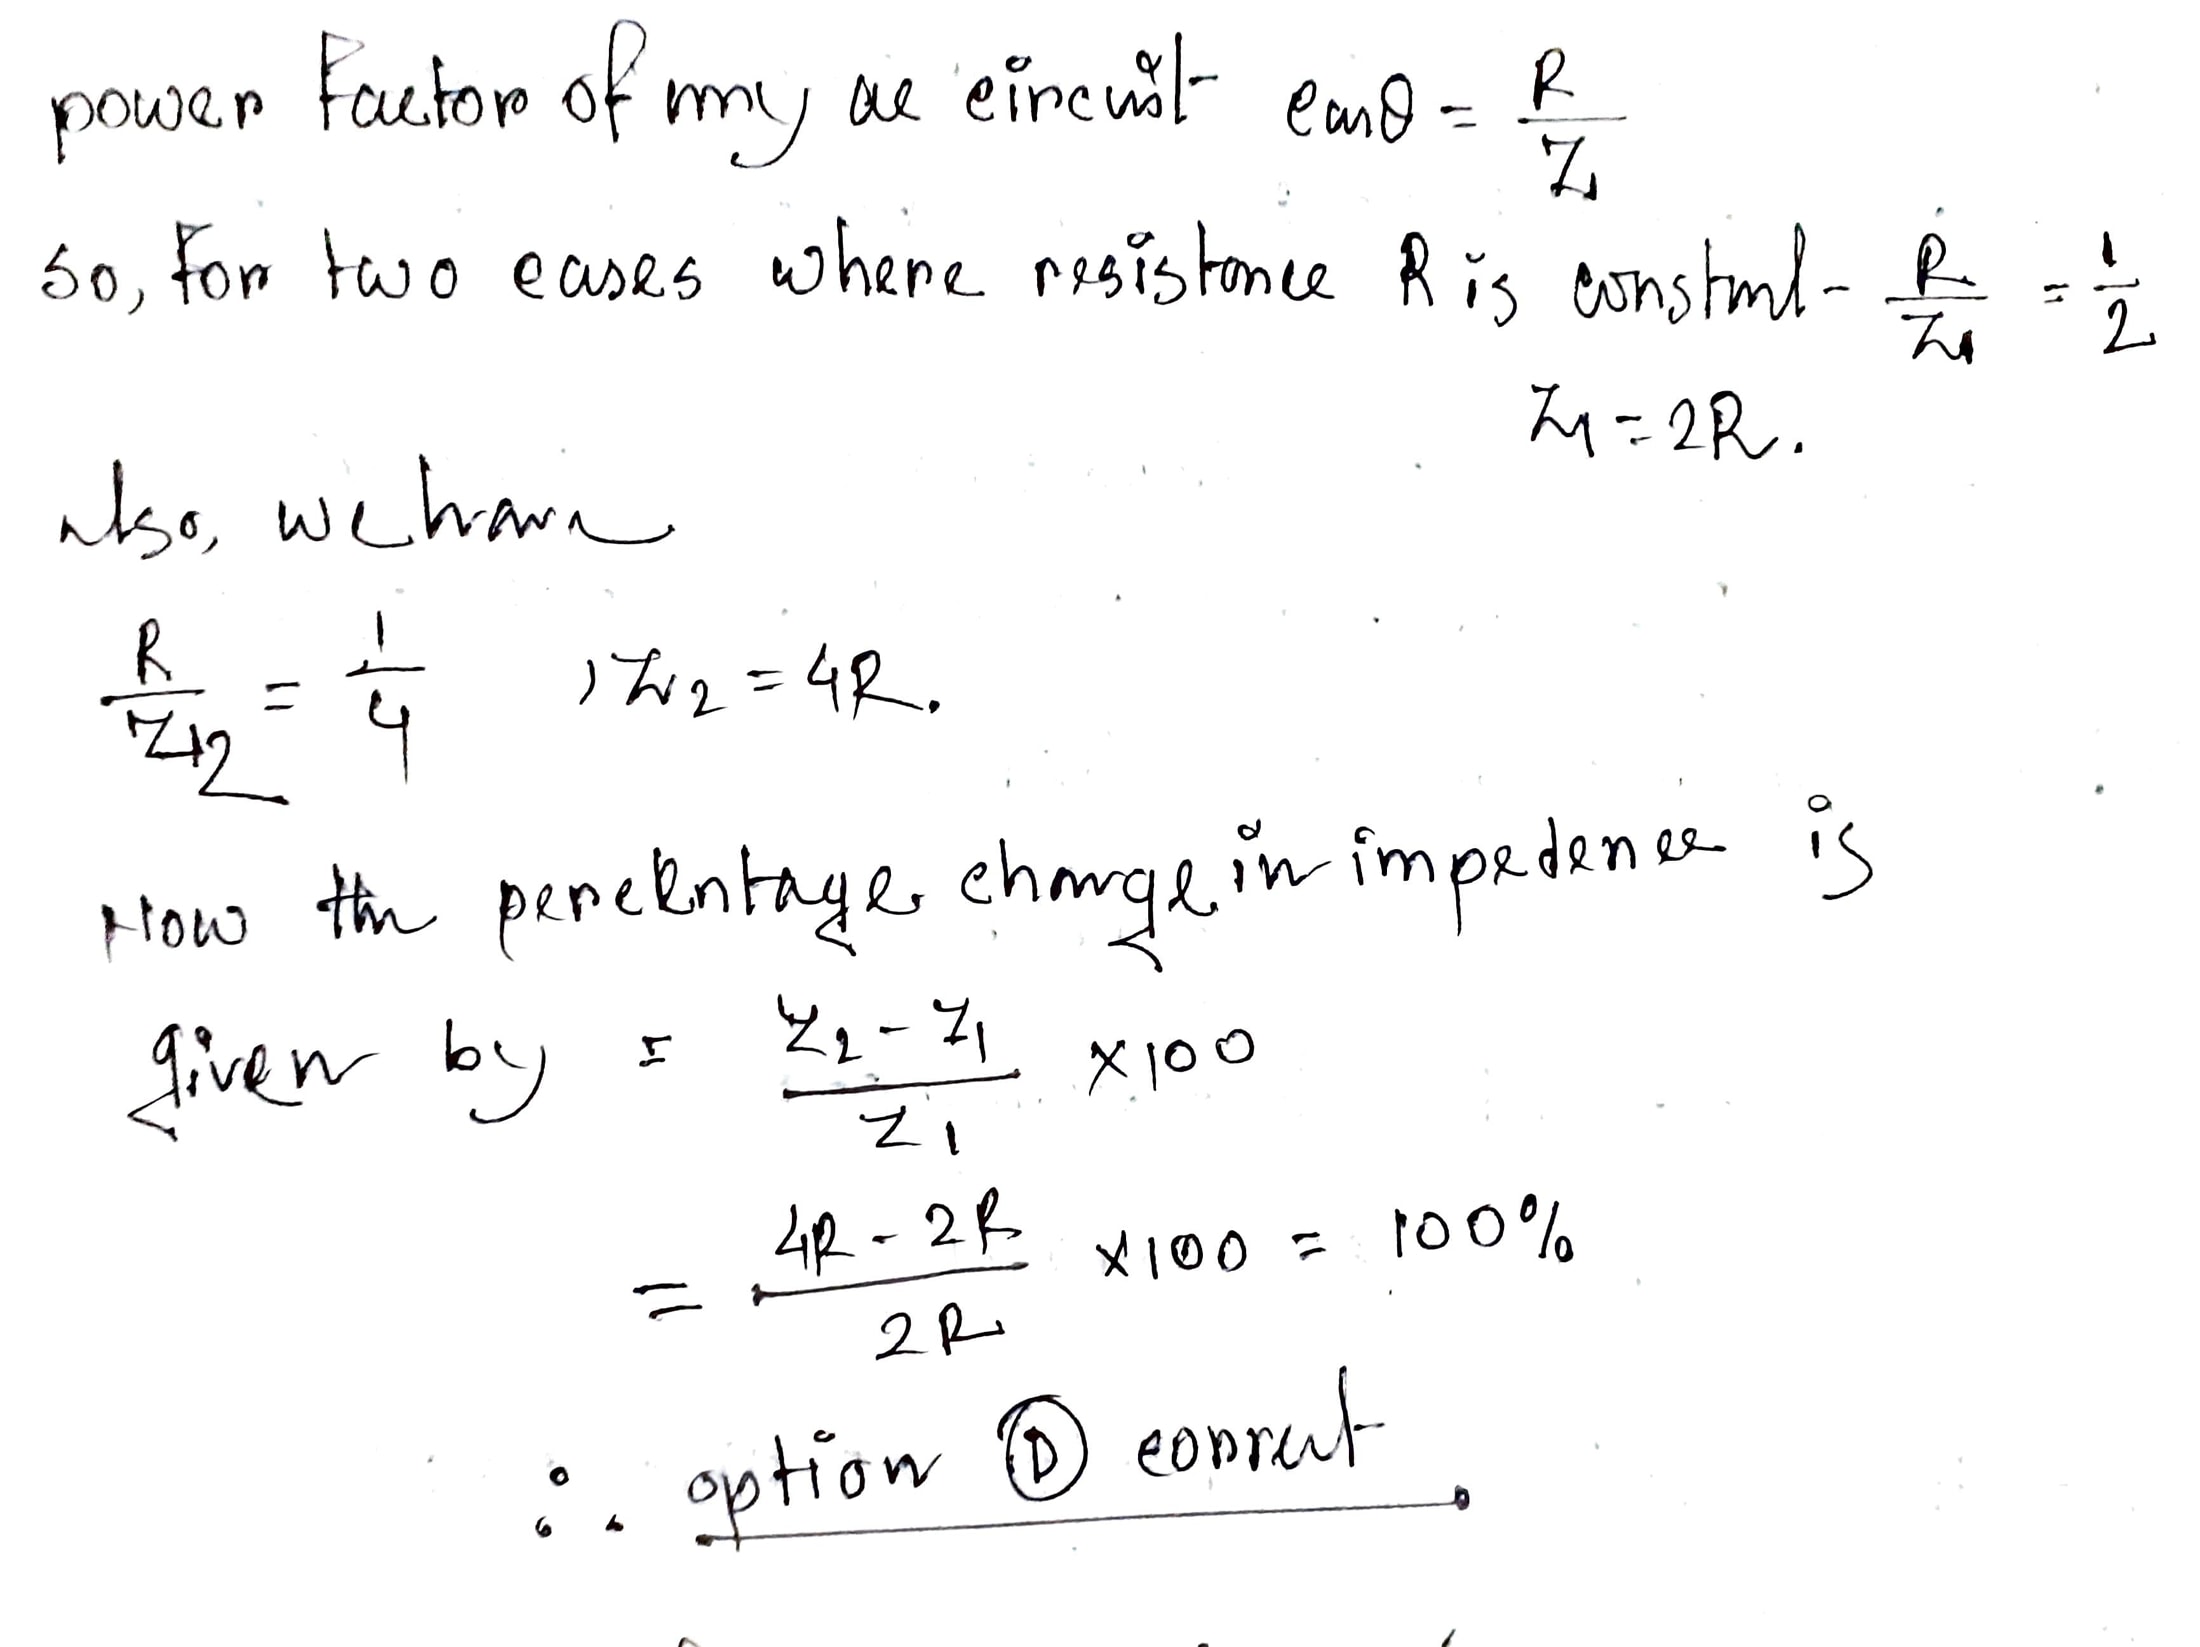 power factor of any ac circuit cosθ = R/Z
so, for two cases where resistance R is constant - R/Z1 = 1/2
Z1 = 2R.
Also, we have
R/Z2 = 1/4 , Z2 = 4R.
Now the percentage change in impedence is
given by = Z2 - Z1/Z1 × 100
= 4R - 2R/2R × 100 = 100%
∴ option Ⓓ correct